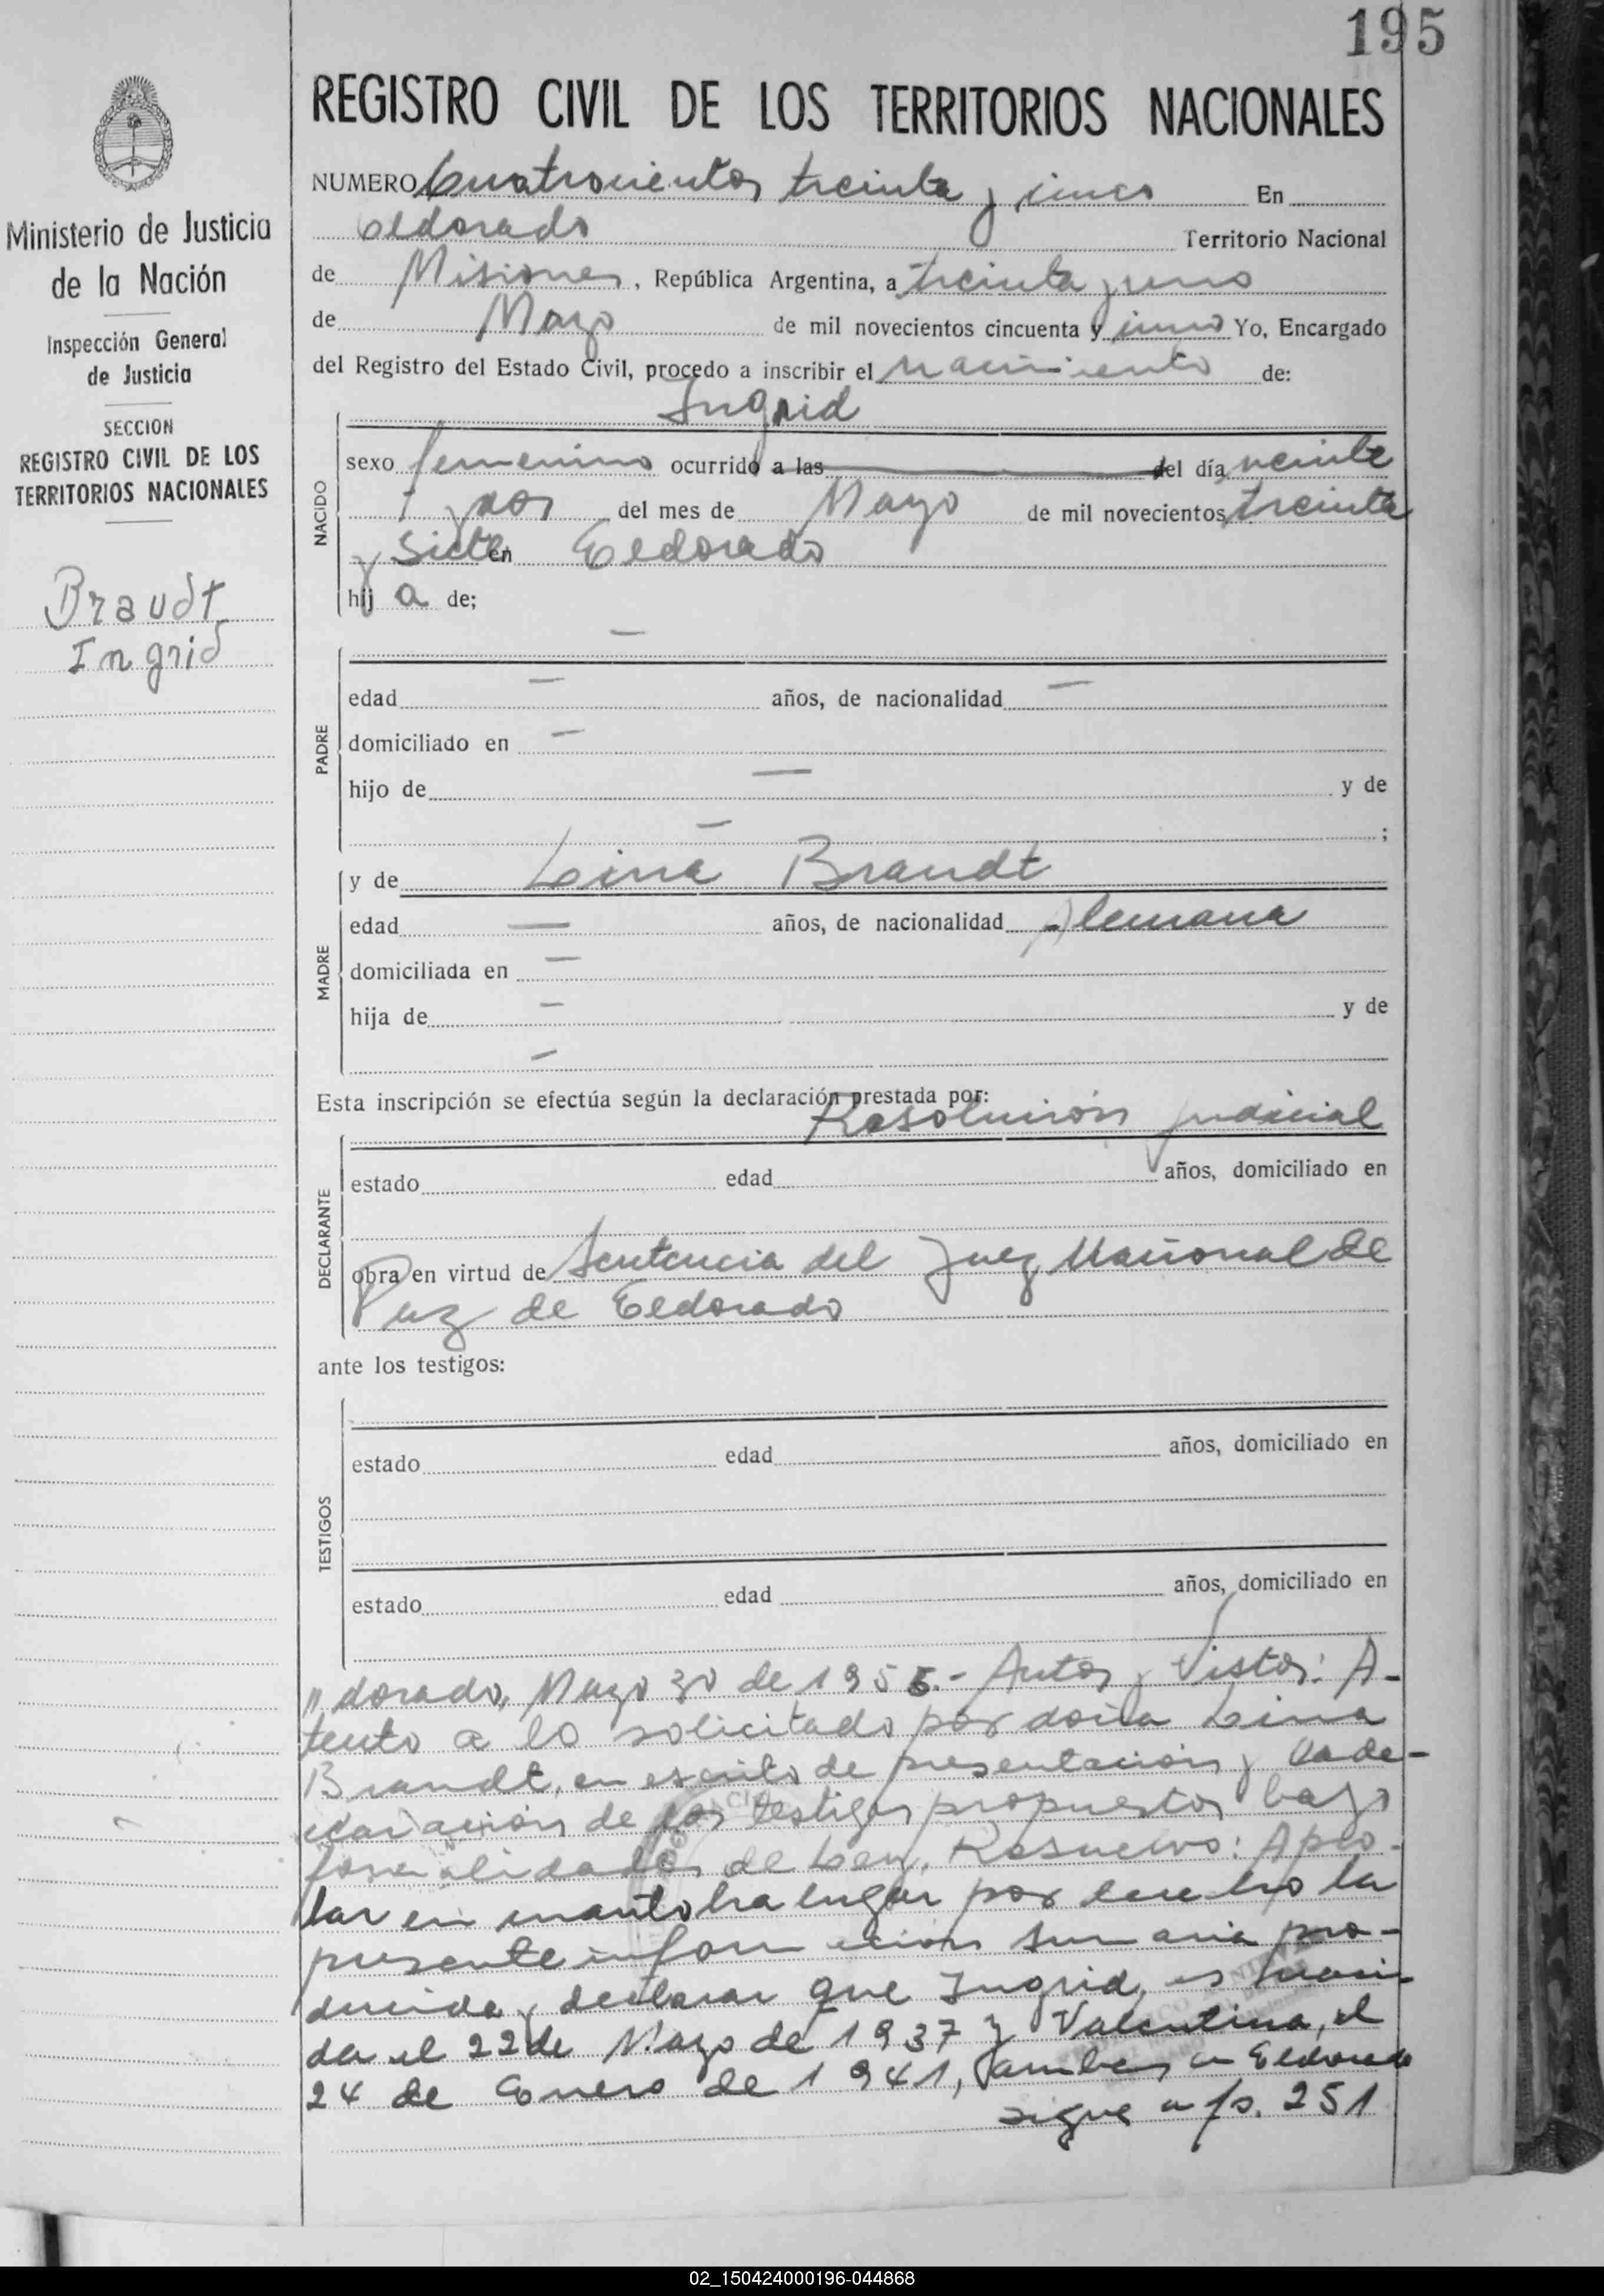 195
REGISTRO CIVIL DE LOS TERRITORIOS NACIONALES
Ministerio de Justicia
de la Nación
Inspección General
de Justicia
SECCION
REGISTRO CIVIL DE LOS
TERRITORIOS NACIONALES
Brandt
Ingrid
NUMERO Cuatrocientos treinta y cinco En
Eldorado Territorio Nacional
de Misiones, República Argentina, a treinta y uno
de Mayo de mil novecientos cincuenta y cinco Yo, Encargado
del Registro del Estado Civil, procedo a inscribir el nacimiento de:
Ingrid
NACIDO
sexo femenino ocurrido a las del día veinte
y dos del mes de Mayo de mil novecientos treinta
y siete en Eldorado
hij a de;
PADRE
—
edad — años, de nacionalidad —
domiciliado en —
hijo de — y de
— ;
MADRE
y de Lina Brandt
edad — años, de nacionalidad Alemana
domiciliada en —
hija de — y de
—
Esta inscripción se efectúa según la declaración prestada por:
Resolución judicial
DECLARANTE
estado edad años, domiciliado en
obra en virtud de Sentencia del Juez Nacional de
Paz de Eldorado
ante los testigos:
TESTIGOS
estado edad años, domiciliado en
estado edad años, domiciliado en
"dorado, Mayo 30 de 1955.- Autos y Vistos: A-
tento a lo solicitado por doña Lina
Brandt, en escrito de presentación y la de-
claración de los testigos propuestos bajo
formalidades de Ley, Resuelvo: Apro-
bar en cuanto ha lugar por derecho la
presente información sumaria pro-
ducida y declarar que Ingrid, es naci-
da el 22 de Mayo de 1937 y Valentina, el
24 de Enero de 1941, ambas en Eldorado
sigue a fs. 251
02_150424000196-044868